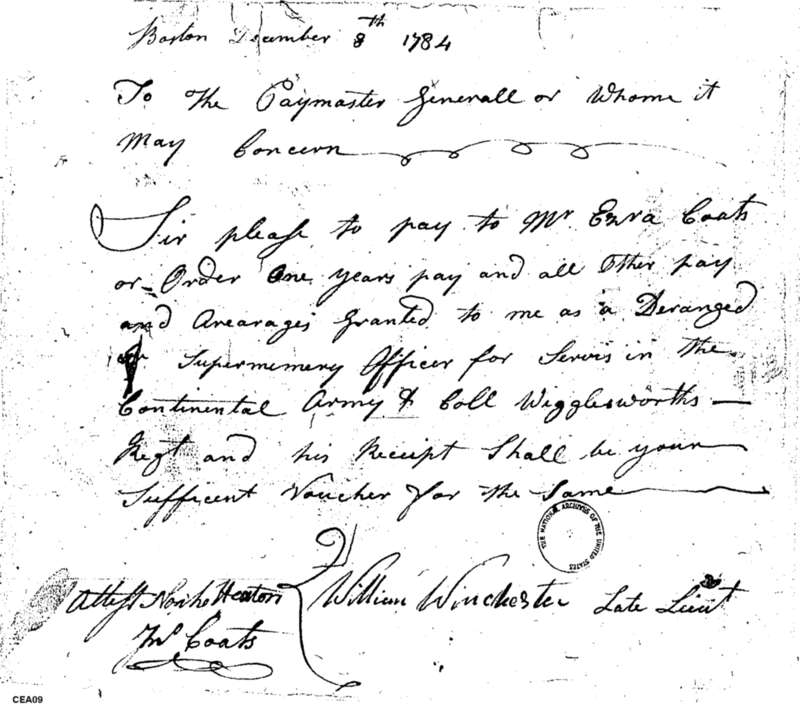 Boston December 8th 1784
To the Paymaster Generall or Whome it
May Concern
Sir please to pay to Mr Ezra Coats
or Order One years pay and all Other pay
and Arearages Granted to me as a Deranged
or Supernemery Officer for Servis in the
Continental Army & Coll Wigglesworths
Regt and his Receipt Shall be your
Sufficent Voucher for the Same
THE NATIONAL ARCHIVES OF THE UNITED STATES
Attest Heaton William Winchester Late Lieut
Jno Coats
CEA09